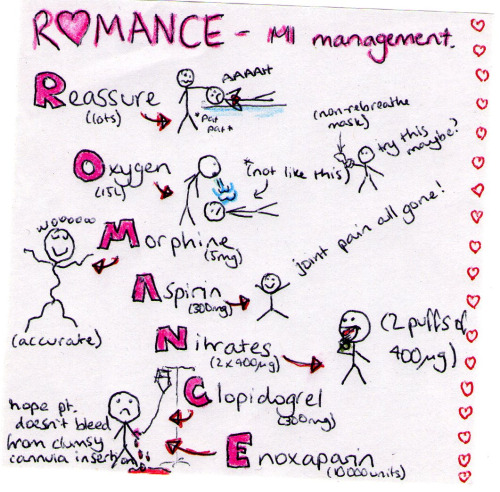 ROMANCE - MI management.
Reassure
(lots)
AAAAH
*Pat
pat*
(non-rebreathe
mask)
try this
maybe?
Oxygen
(15L)
*(not like this)
woooow
Morphine
(5mg)
(accurate)
Aspirin
(300mg)
joint pain all gone!
Nitrates
(2x400µg)
(2 puffs of
400µg)
Clopidogrel
(300mg)
hope pt.
doesn't bleed
from clumsy
cannula insertion
Enoxaparin
(10000units)